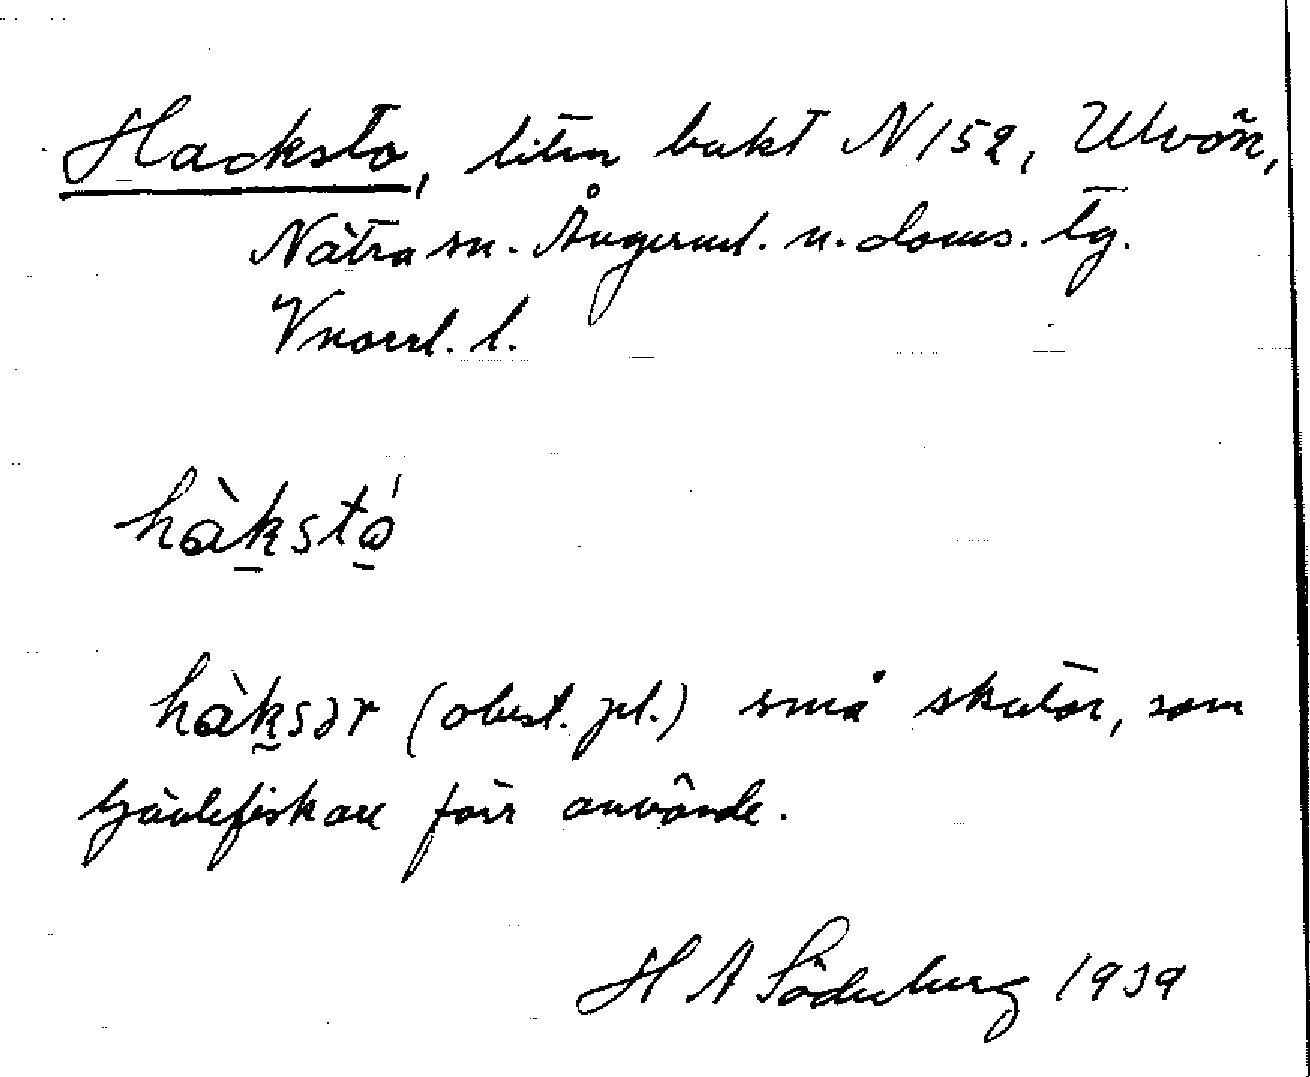 Hacksta, liten bukt N 152, Ulvön,
Nätra sn. Ångerml. n. doms. tg.
Vnorrl. l.
hàkstá
hàksər (obest. pl.) små skutor, som
Gävlefiskare förr använde.
H A Söderberg 1939